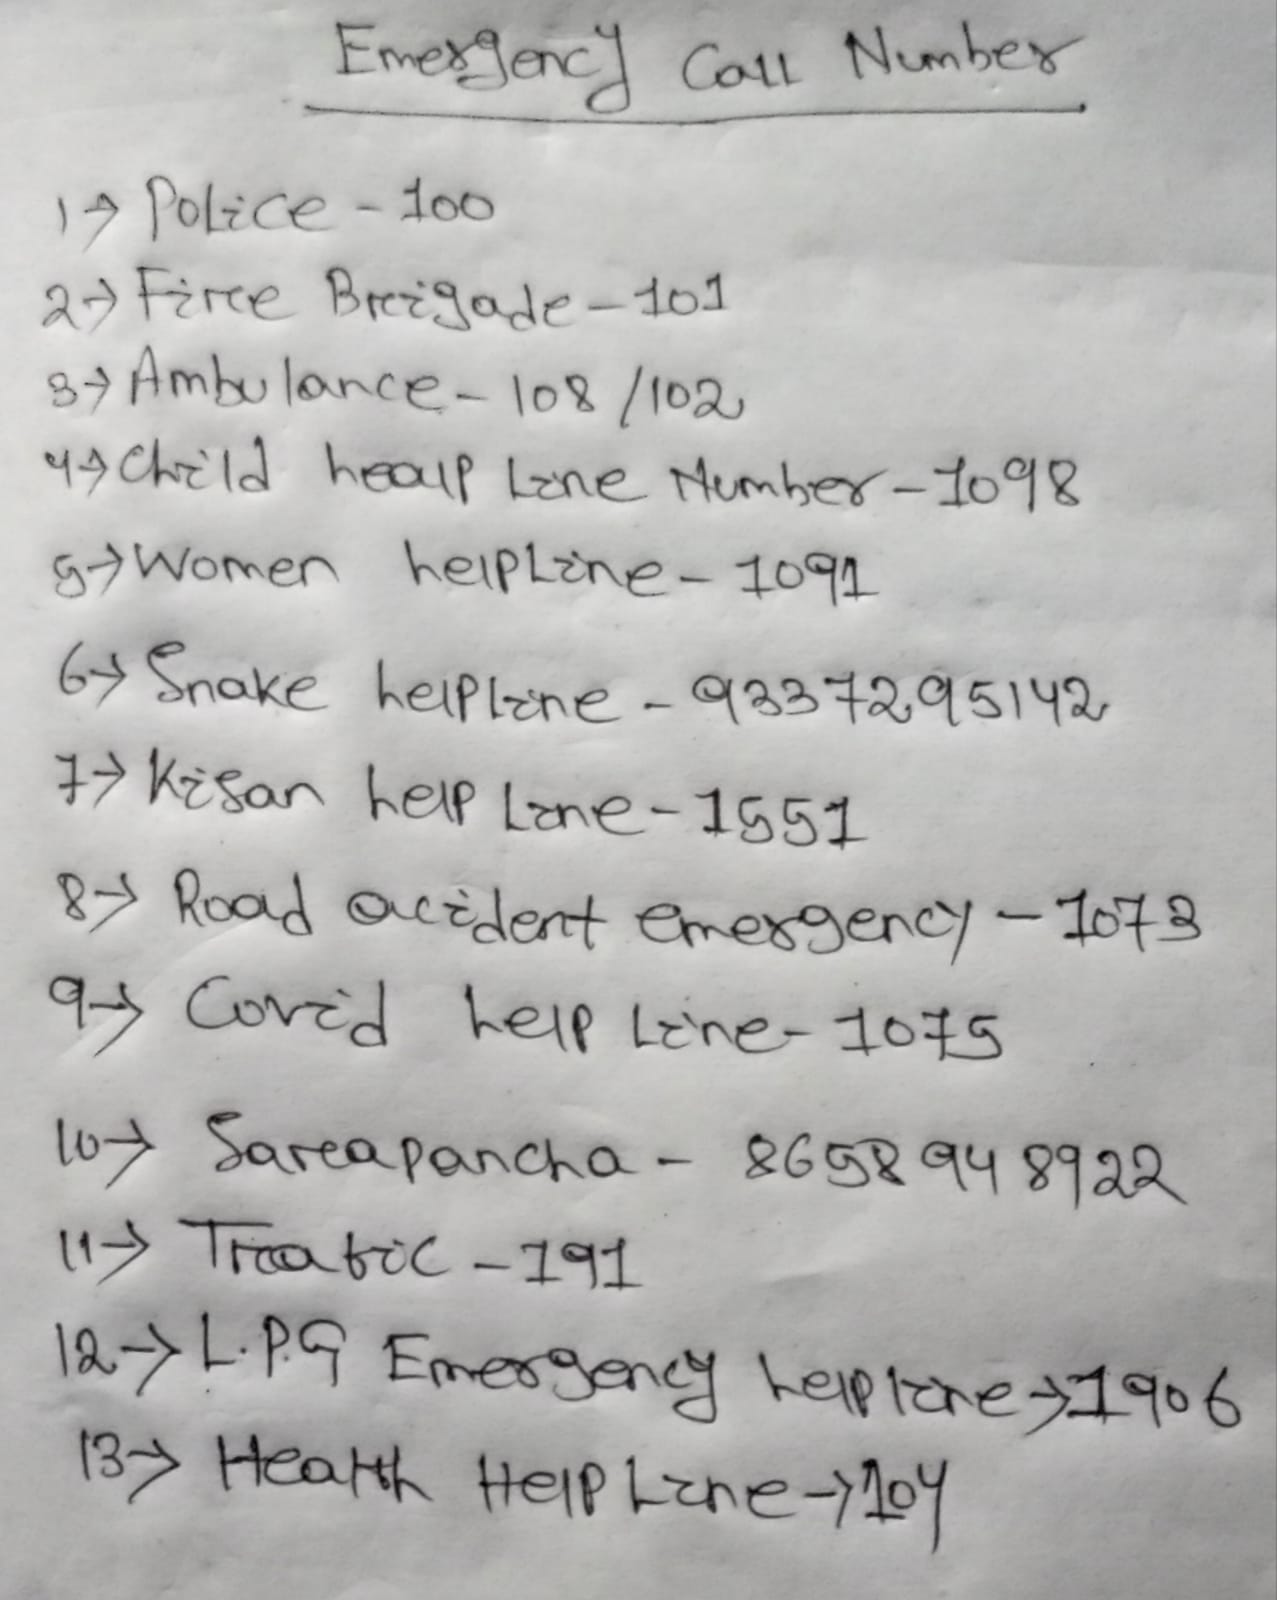 Emergency Call Number
1→ Police - 100
2→ Fire Brigade - 101
3→ Ambulance - 108 /102
4→ Child healp Line Number - 1098
5→ Women helpLine - 1091
6→ Snake helpline - 9337295142
7→ Kisan help Line - 1551
8→ Road acident emergency - 1073
9→ Covid help Line - 1075
10→ Sareapancha - 8658948922
11→ Trafic - 191
12→ L.P.G Emergency helpline → 1906
13→ Health Help Line → 104